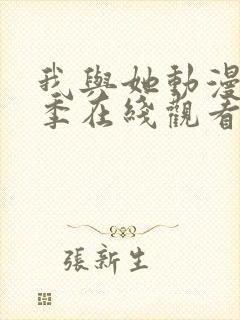 我與她動漫
季在綫觀看
張新生